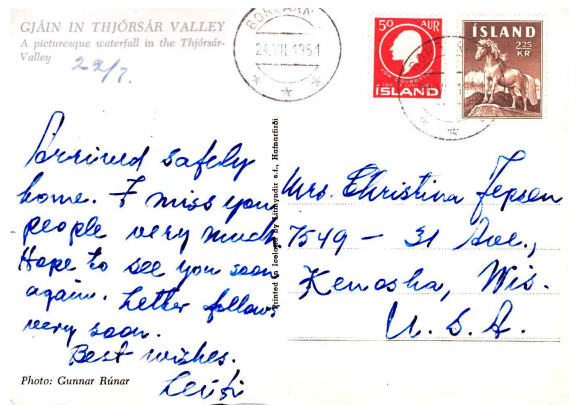 GJÁIN IN THJÓRSÁR VALLEY
A picturesque waterfall in the Thjórsár-
Valley
22/7.
24.VII.1961
50 AUR
ÍSLAND
ÍSLAND
2.25
KR
Arrived safely
home. I miss you
people very much
Hope to see you soon
again. Letter follows
very soon.
Best wishes.
Photo: Gunnar Rúnar
Printed in Iceland by Litmyndir s.f., Hafnarfirði
Mrs. Christina Jepsen
7549 – 31 Ave.,
Kenosha, Wis.
U. S. A.